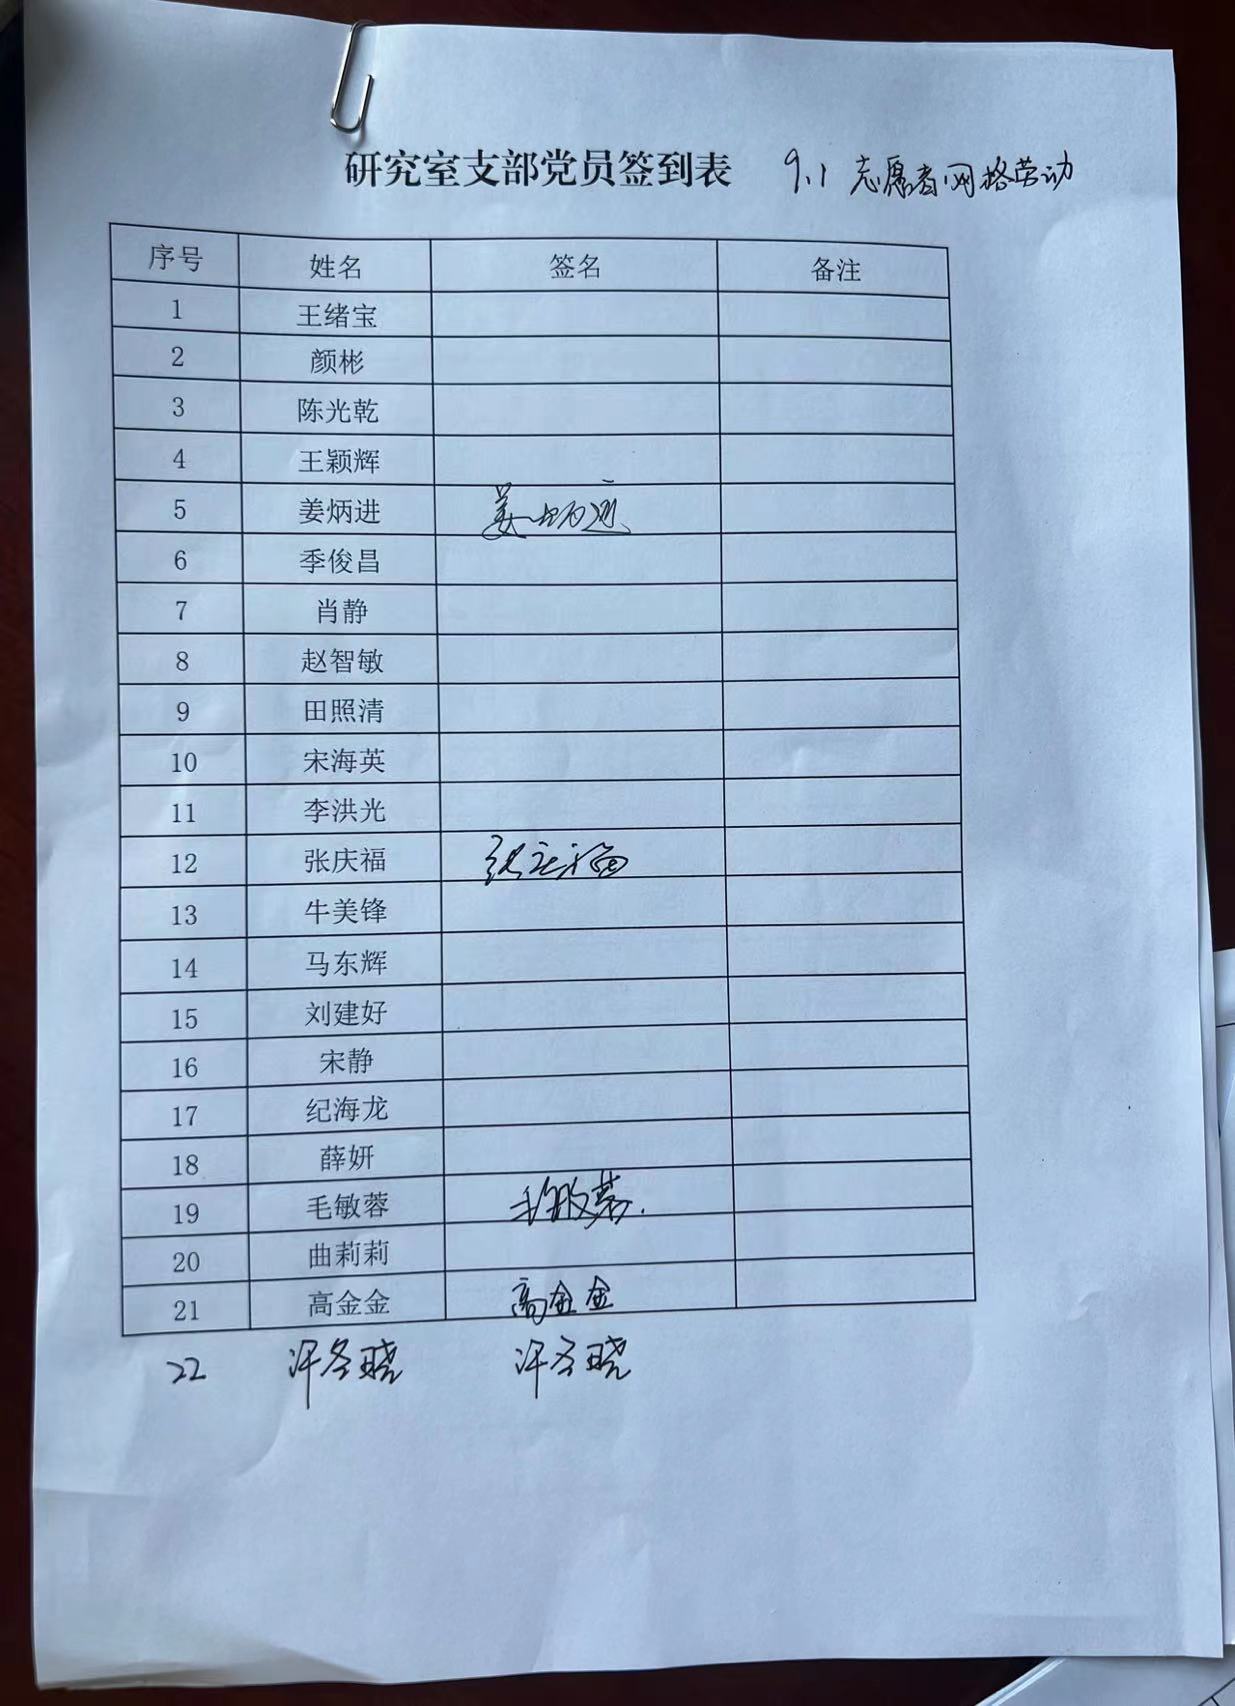 研究室支部党员签到表 9.1 志愿者网格劳动
序号 姓名 签名 备注
1 王绪宝
2 颜彬
3 陈光乾
4 王颖辉
5 姜炳进 姜炳进
6 季俊昌
7 肖静
8 赵智敏
9 田照清
10 宋海英
11 李洪光
12 张庆福 张庆福
13 牛美锋
14 马东辉
15 刘建好
16 宋静
17 纪海龙
18 薛妍
19 毛敏蓉 毛敏蓉
20 曲莉莉
21 高金金 高金金
22 许冬晓 许冬晓